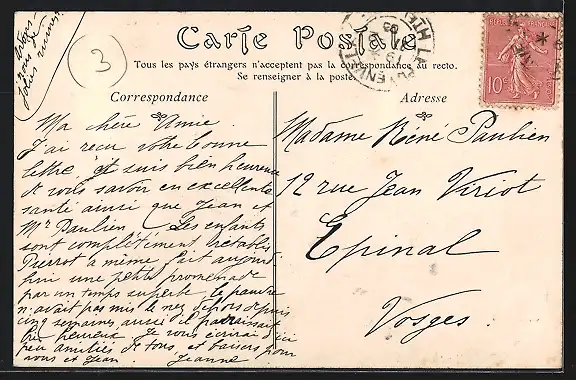 Carte Postale
Tous les pays étrangers n'acceptent pas la correspondance au recto.
Se renseigner à la poste.
3
REPUBLIQUE FRANÇAISE
10c
Correspondance
Ma chère Amie.
J'ai recu votre bonne
lettre, et suis bien heureuse
de vous savoir en excellente
santé ainsi que Jean et
Mr Paulien. Les enfants
sont complètement rétablis
Pierrot a même fait aujourd'
hui une petite promenade
par un temps superbe le pauvre
n'avait pas mis le nez dehors depuis
cinq semaines aussi il paraissait
bien heureux. Je vous écrirai d'ici
peu amitiés de tous, et baisers pour
vous et Jean. Jeanne
Adresse
Madame Réné Paulien
12 rue Jean Viriot
Epinal
Vosges.